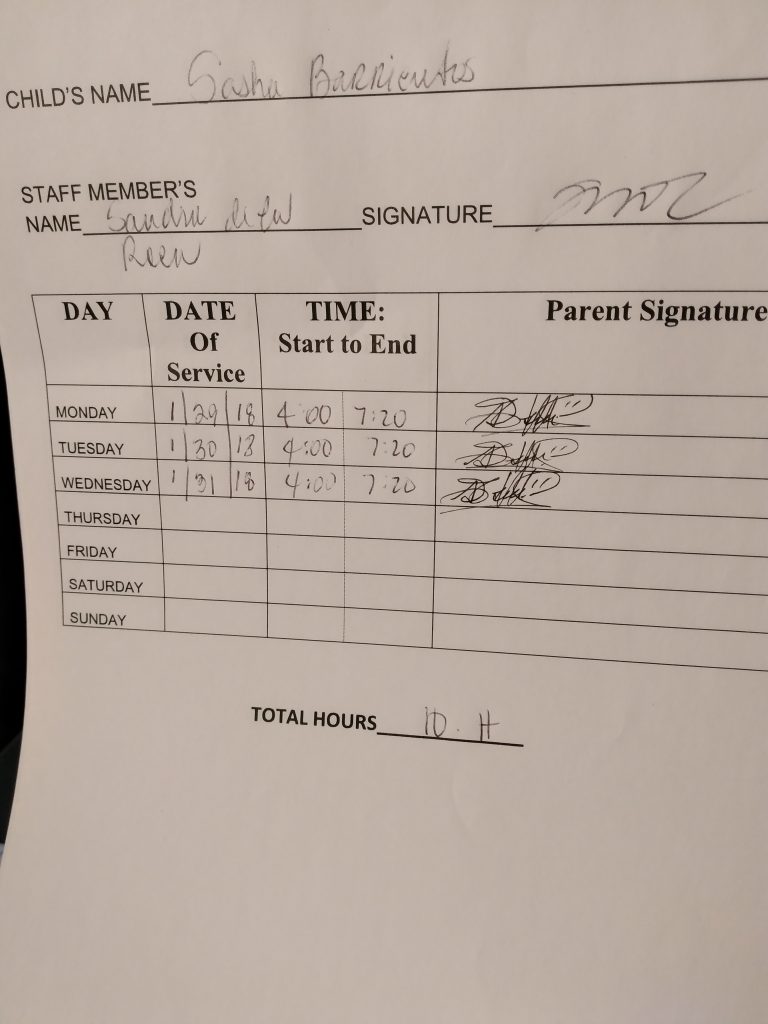 CHILD'S NAME Sasha Barrientos
STAFF MEMBER'S
NAME Sandra SIGNATURE
DAY DATE Of Service TIME: Start to End Parent Signature
MONDAY 1/29/18 4:00 7:20
TUESDAY 1/30/18 4:00 7:20
WEDNESDAY 1/31/18 4:00 7:20
THURSDAY
FRIDAY
SATURDAY
SUNDAY
TOTAL HOURS 10. H